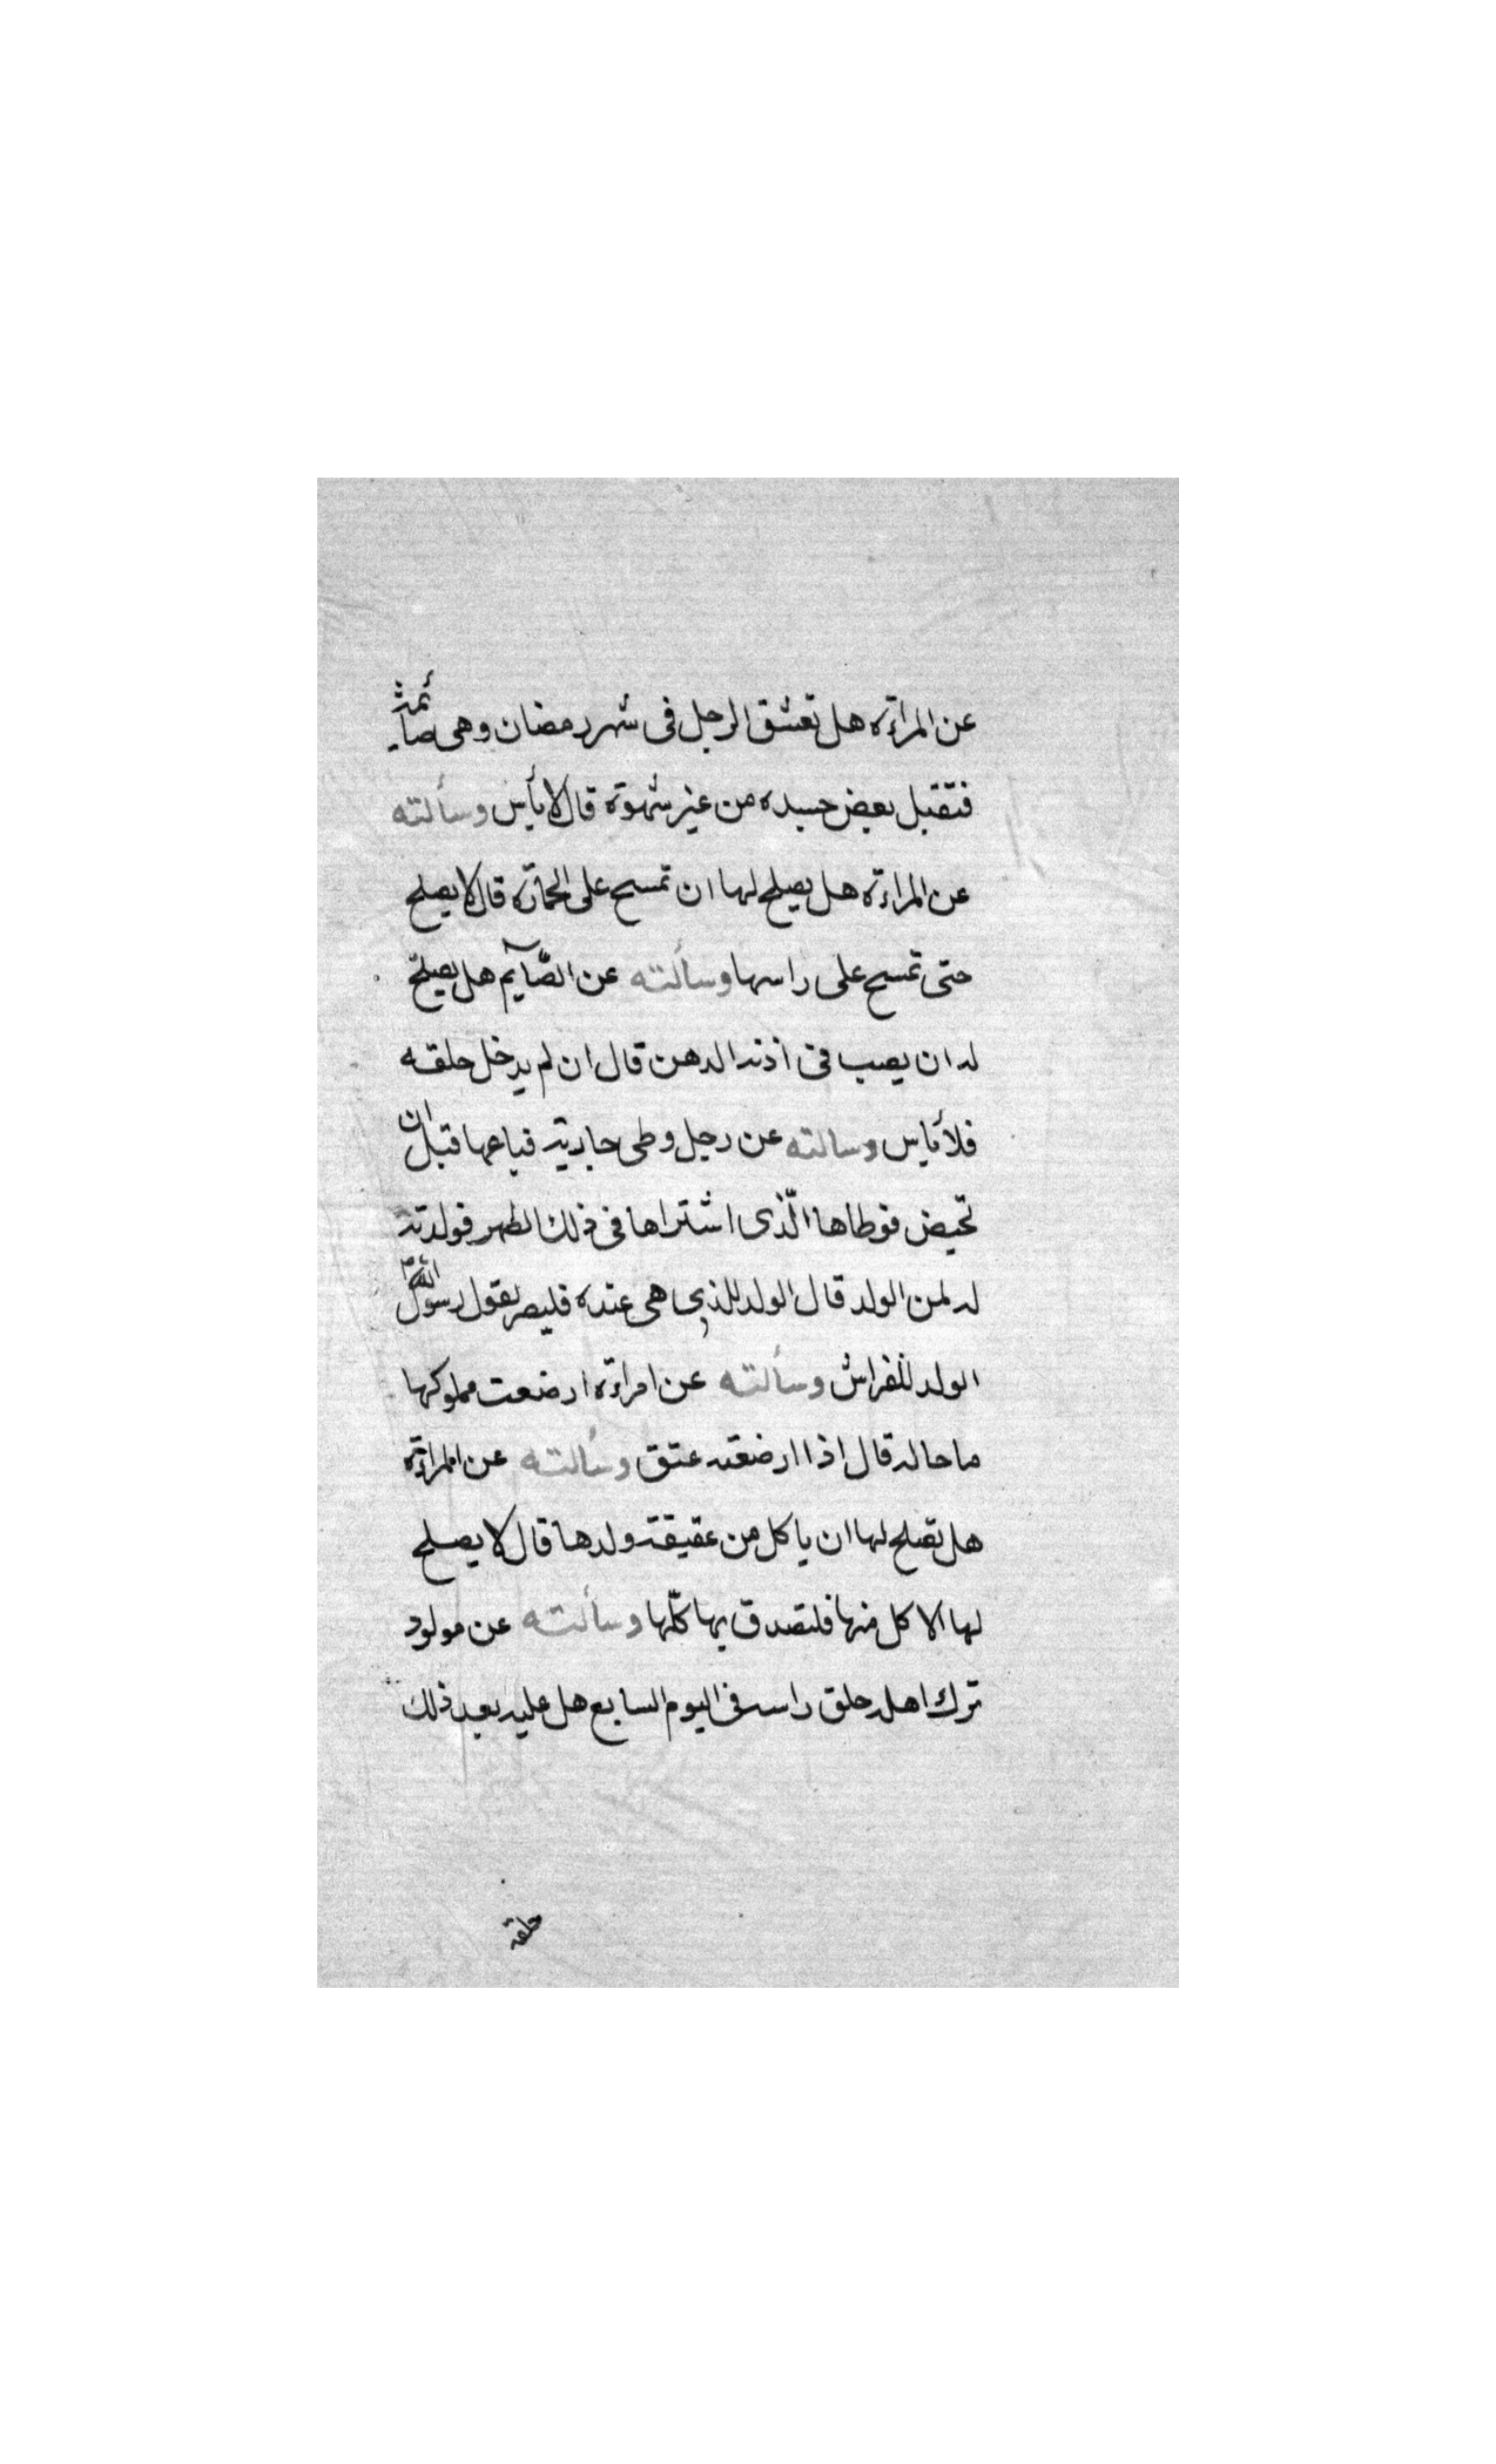 عن المراءة هل تعشق الرجل فى شهر رمضان وهى صائمة
فتقبل بعض جسده من غير شهوة قال لا بأس وسألته
عن المراءة هل يصلح لها ان تمسح على الخمارة قال لا يصلح
حتى تمسح على راسها وسألته عن الصّآيم هل يصلح
له ان يصب فى اذنه الدهن قال ان لم يدخل حلقه
فلا بأس وسالته عن رجل وطى جاريته فباعها قبل ان
تحيض فوطاها الّذى اشتراها فى ذلك الطهر فولدت
له لمن الولد قال الولد للذى هى عنده فليصر لقول رسول الله ص
الولد للفراش وسألته عن امراءة ارضعت مملوكها
ما حاله قال اذا ارضعته عتق وسألته عن المراءة
هل تصلح لها ان ياكل من عقيقة ولدها قال لا يصلح
لها الاكل منها فلتصدق بها كلّها وسألته عن مولود
ترك اهله حلق راسه فى اليوم السابع هل عليه بعد ذلك
حلقه